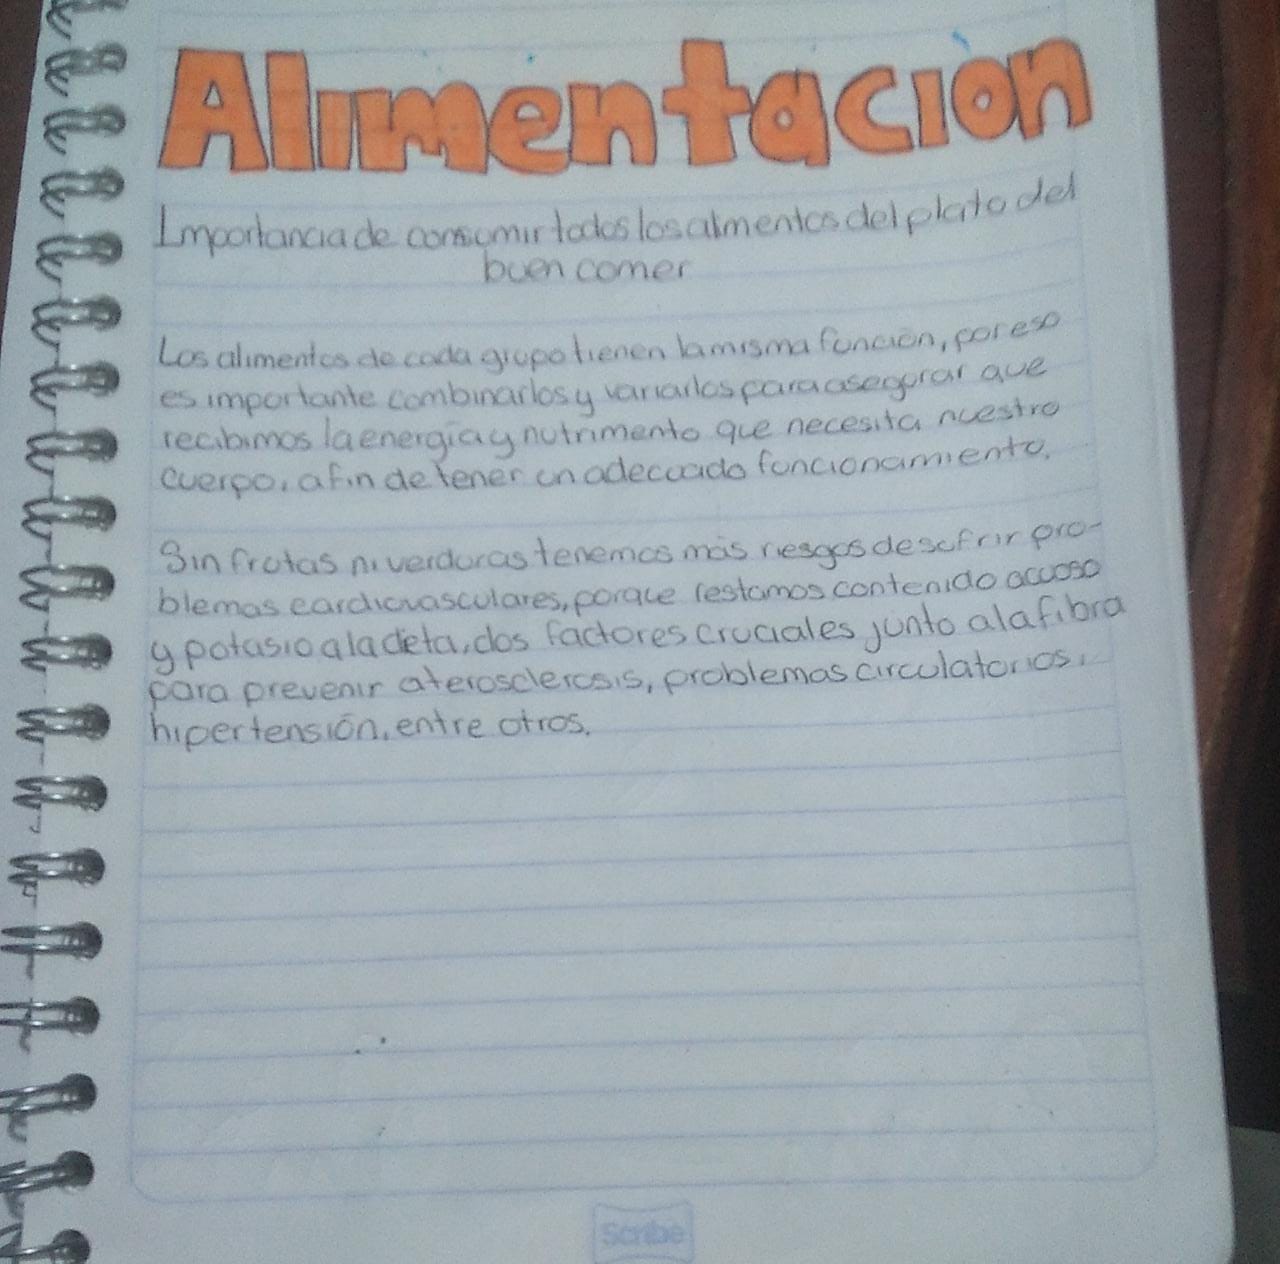 Alimentación
Importancia de consumir todos los almentos del plato del
buen comer
Los alimentos de cada grupo tienen la misma función, por eso
es importante combinarlos y variarlos para asegurar que
recibimos la energía y nutrimento que necesita nuestro
cuerpo, a fin de tener un adecuado funcionamiento.
Sin frutas ni verduras tenemos más riesgos de sufrir pro-
blemas cardiovasculares, porque restamos contenido acuoso
y potasio a la dieta, dos factores cruciales junto a la fibra
para prevenir aterosclerosis, problemas circulatorios,
hipertensión, entre otros.
Scribe